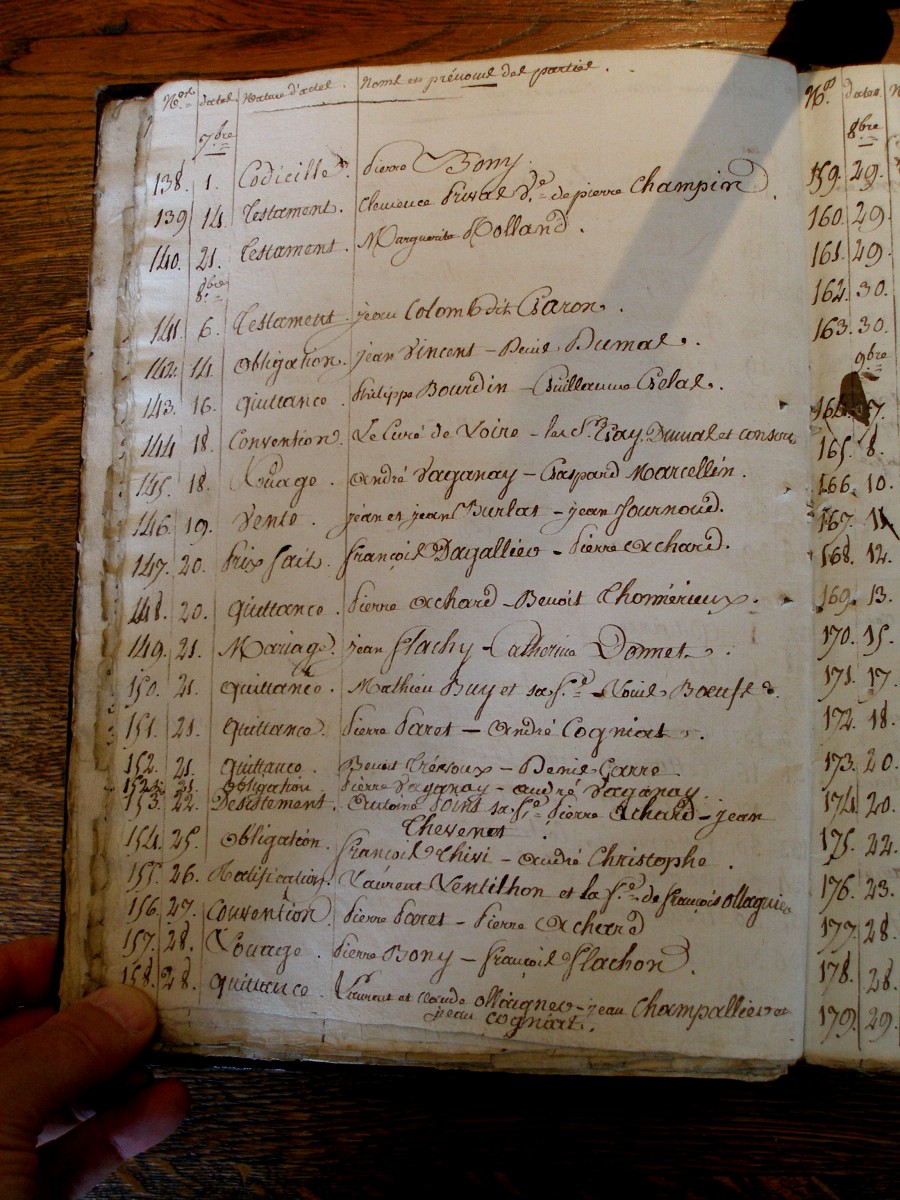 Nos. dates Nature d'actes Noms et prénoms des parties.
7bre
138. 1. Codicille. pierre Bony.
139 14. Testament. Clemence Prival Ve. de pierre Champin.
140. 21. Testament. Marguerite Rolland.
8bre
141. 6. Testament. jean Colomb dit Caron.
142. 14. Obligation. jean Vincent - Denis Dumas.
143. 16. Quittance. Philippe Bourdin - Guillaume Gelas.
144 18. Convention. Le Curé de Loire - les Srs. Gay, Dumas et
145. 18. Louage. André Vaganay - Gaspard Marcellin.
146. 19. Vente. jean et jean Burlat - jean Journoud.
147. 20. Prix fait. françois Dagallier - Pierre Achard.
148. 20. Quittance. Pierre Achard - Benoit Thomérieux.
149. 21. Mariage. jean flachy - Catherine Donnet.
150. 21. Quittance. Mathieu Buy et sa fe. - Louis Boeuf.
151. 21. Quittance. Pierre Paret - André Cogniat.
152. 21. Quittance. Benoit Trénoux - Denis Garre
Obligation Pierre Vaganay - andré Vaganay.
153. 22. Desistement. Antoine sa fe. Pierre Achard - jean
Thevenot
154. 25. Obligation. françois Thivi - andré Christophe.
155. 26. Ratification. Laurent Ventilhon et la fe. de françois ollagnier
156. 27. Convention Pierre Paret - Pierre Achard
157. 28. Louage. Pierre Bony - françois flachon.
158. 28. Quittance. Laurent et claude ollagner - jean Champallier et
jean Cogniat.
Nos. dates
8bre
159. 29.
160. 29.
161. 29.
162. 30.
163. 30.
9bre
7.
165. 8.
166. 10.
167. 11
168. 12.
169. 13.
170. 15.
171. 17.
172. 18.
173. 20.
174. 20.
175. 22.
176. 23.
177. 28.
178. 28.
179. 29.